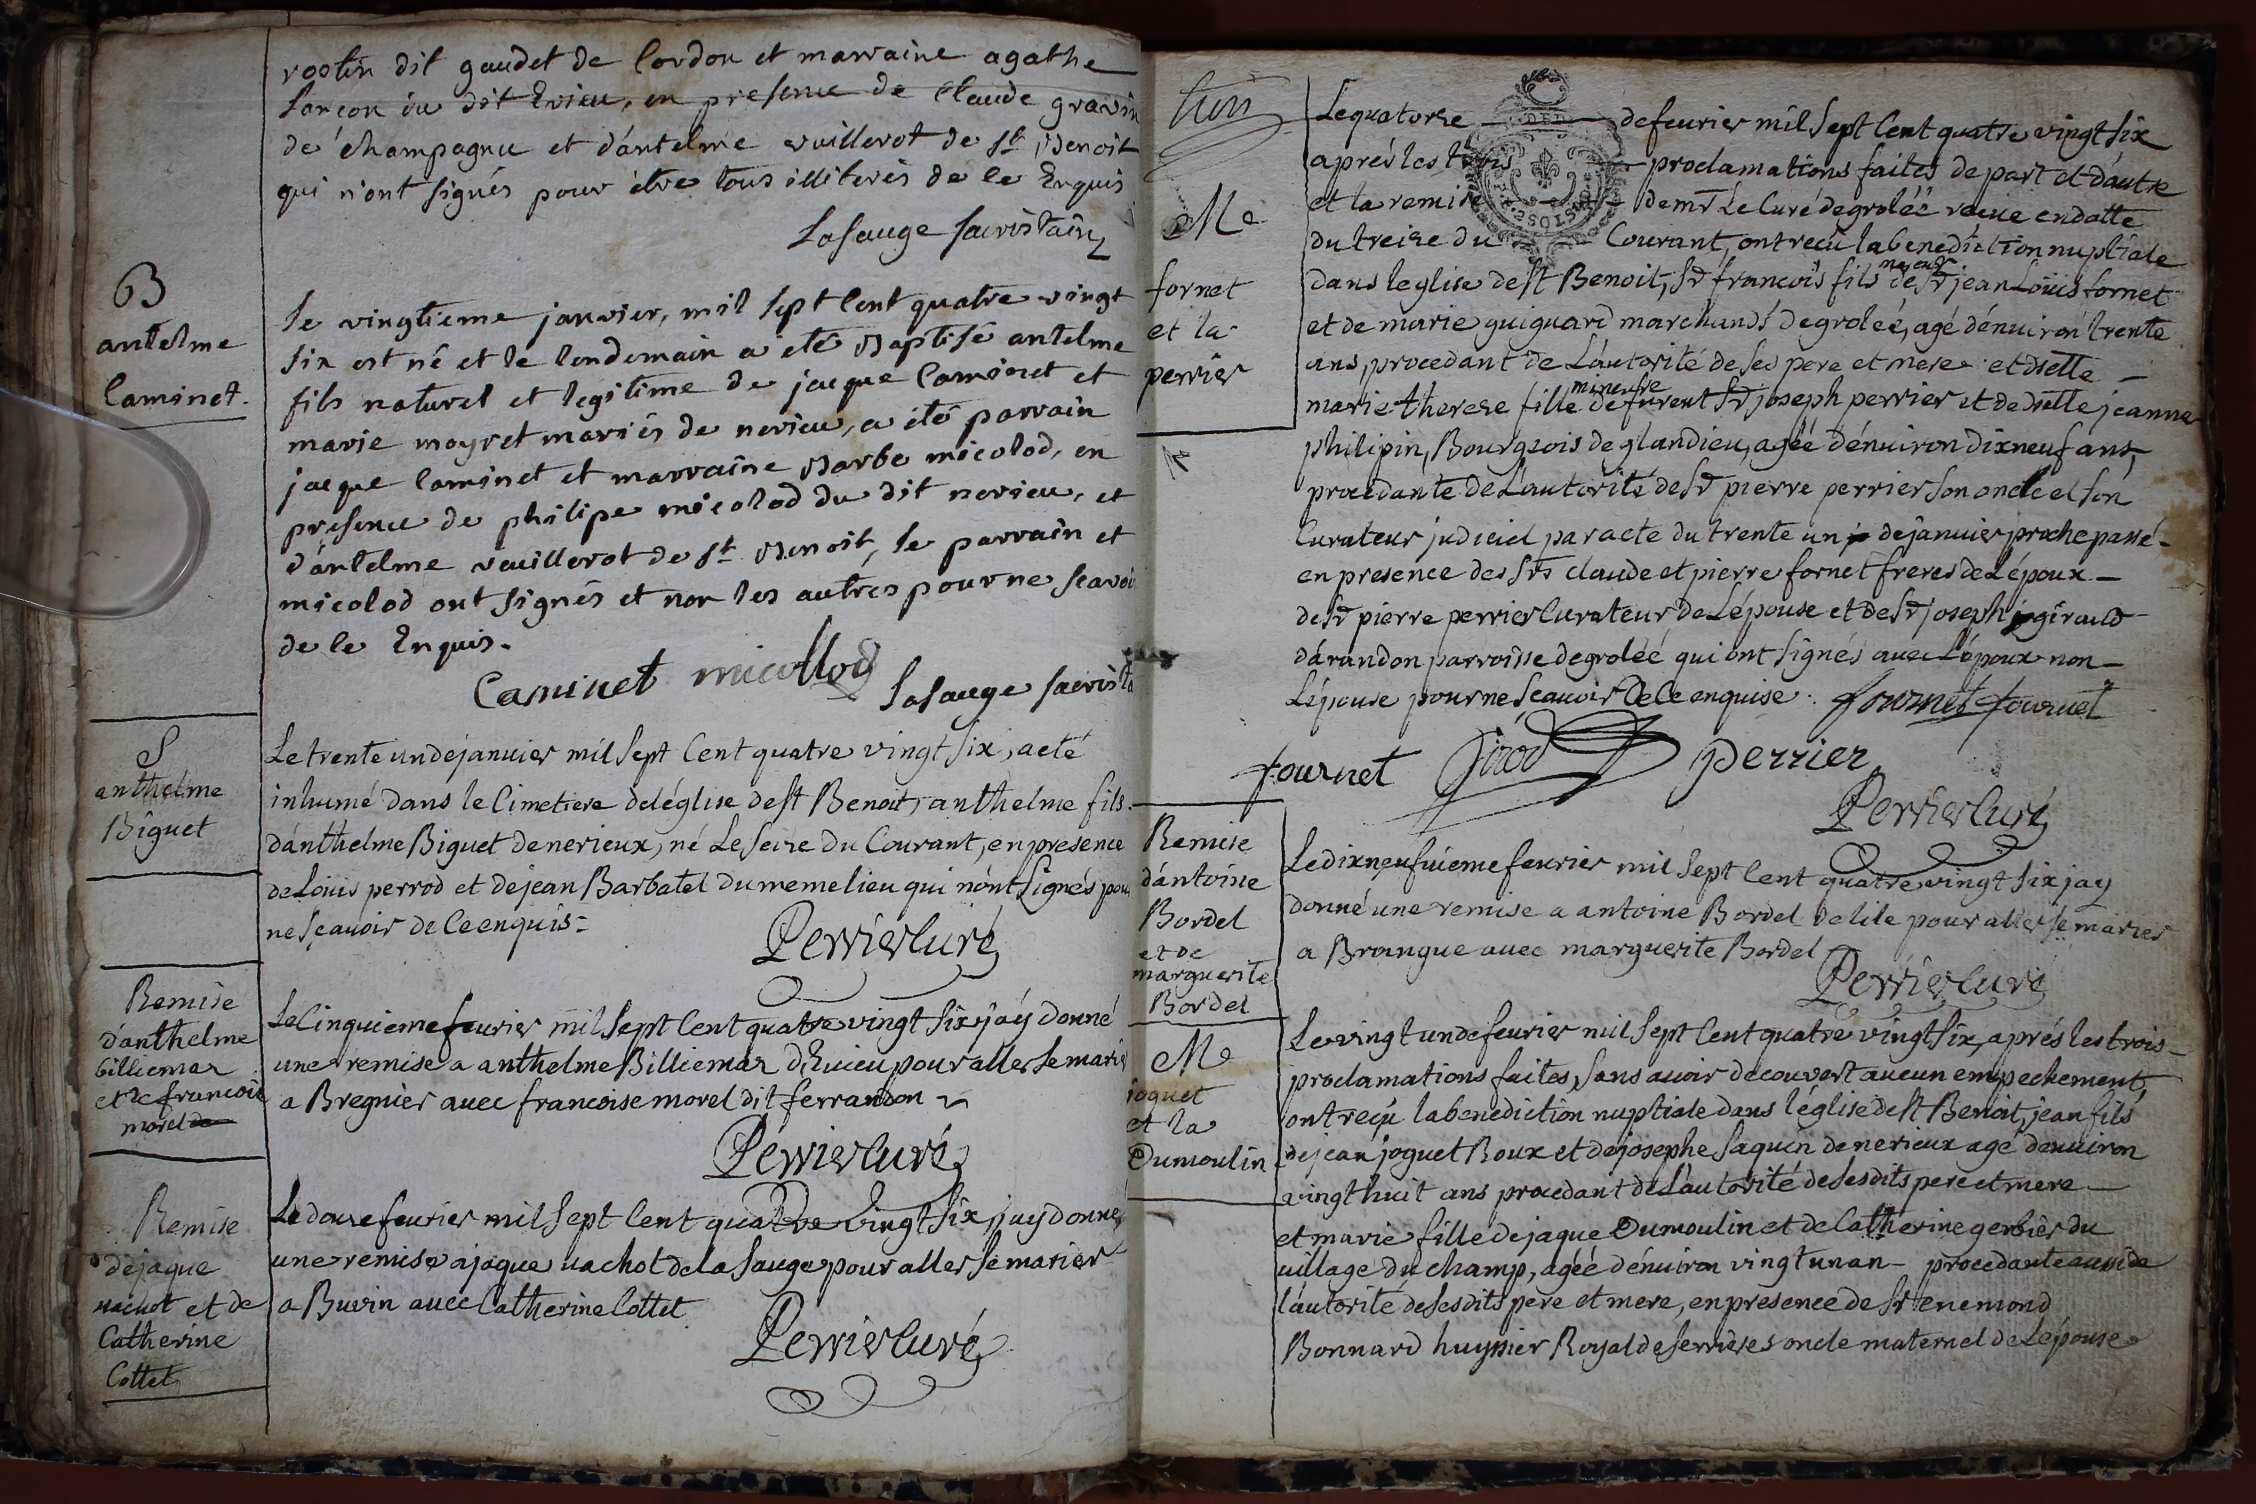 rostin dit gaudet de Cordon et marraine agathe
Lancon du dit Evieu, en presence de Claude gravin
de champagne et d'antelme vuillerot de St Benoit
qui n'ont signés pour être tous illiterés de ce Enquis
Lasauge sacristain
B
antelme
Caminet.
Le vingtieme janvier, mil sept cent quatre vingt
six est né et le lendemain a eté Baptisé antelme
fils naturel et legitime de jacque Caminet et
marie moyret mariés de nerieu, a été parrain
jacque Caminet et marraine Barbe micolod, en
presence de philipe micolod du dit nerieu, et
d'antelme veuillerot de St Benoit, le parrain et
micolod ont signés et non les autres pour ne scavoi
de ce Enquis.
Caminet micollod
Lasauge sacrista
S
anthelme
Biguet
Le trente un de janvier mil sept Cent quatre vingt six, a eté
inhumé dans le Cimetiere de léglise de St Benoit, anthelme fils
dánthelme Biguet de nerieux, né Le Seize du Courant, en presence
de Loüis perrod et de jean Barbatel du meme lieu qui nónt Signés pou
ne Sçauoir de Ce enquis=
Perrier Curé
Remise
d'anthelme
billiemaz
et de francoise
morel
Le Cinquieme feurier mil Sept Cent quatre vingt Six jáy donné
une remise a anthelme Billiemaz d'Euieu pour aller Se marie
a Bregnier auec francoise morel dit ferrandon
Perrier Curé
Remise
de jaque
uachot et de
Catherine
Cottet
Le douze feurier mil Sept Cent quatre Vingt Six, j'ay donné
une remise a jaque uachot de la Sauge pour aller Se marier
a Buvin auec Catherine Cottet
Perrier Curé
Me
fornet
et la
perrier
Le quatorze de feurier mil Sept Cent quatre vingt Six
aprés les trois proclamations faites de part et dáutre
et la remise de mr Le Curé de groléé recue en datte
du treize du Courant, ont recu la benediction nuptiale
dans leglise de St Benoit, Sr francois fils majeur de Sr jean Loüis fornet
et de marie guiguard marchands de groleé, agé dénuiron trente
ans, procedant de Láutorité de Ses pere et mere et dlle
marie thereze fille mineure de furent Sr joseph perrier et de dlle jeanne
philipin, Bourgeois de glandieu, agéé dénuiron dixneuf ans,
procedante de Láutorité de Sr pierre perrier Son oncle et Son
Curateur judiciel par acte du trente un de januier proche passé
en presence des Srs Claude et pierre fornet freres de Lépoux
de Sr pierre perrier Curateur de Lépouse et de Sr joseph girauld
dárandon parroisse de groléé qui ont Signés auec Lépoux non
Lépouse pour ne Sçauoir de Ce enquise. fournet fournet
fournet Girod perrier
Perrier Curé
Remise
dántoine
Bordel
et de
marguerite
Bordel
Le dixneufuieme feurier mil Sept Cent quatre vingt Six jay
donné une remise a antoine Bordel de lile pour aller Se marier
a Brangue auec marguerite Bordel
Perrier Curé
Me
joguet
et la
Dumoulin
Le vingt un de feurier mil Sept Cent quatre vingt Six, aprés les trois
proclamations faites, Sans auoir decouvert aucun empechement,
ont reçu la benediction nuptiale dans léglise de St Benoit, jean fils
de jean joguet Roux et de josephe Saquin de nerieux agé denuiron
vingt huit ans procedant de Láutorité de Sesdits pere et mere
et marie fille de jaque Dumoulin et de Catherine gerbier du
uillage du champ, agéé dénuiron vingt un an procedante aussi de
láutorité de Sesdits pere et mere, en presence de Sr enemond
Bonnard huyssier Royal de Serrieres oncle maternel de Lépouse